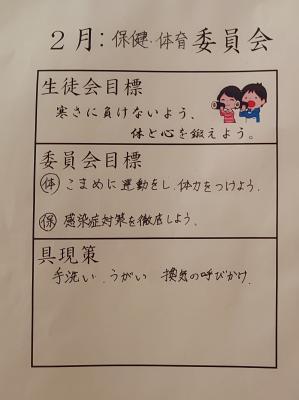 2月:保健・体育委員会
生徒会目標
寒さに負けないよう、
体と心を鍛えよう。
委員会目標
体 こまめに運動をし、体力をつけよう.
保 感染症対策を徹底しよう.
具現策
手洗い、うがい 換気の呼びかけ.